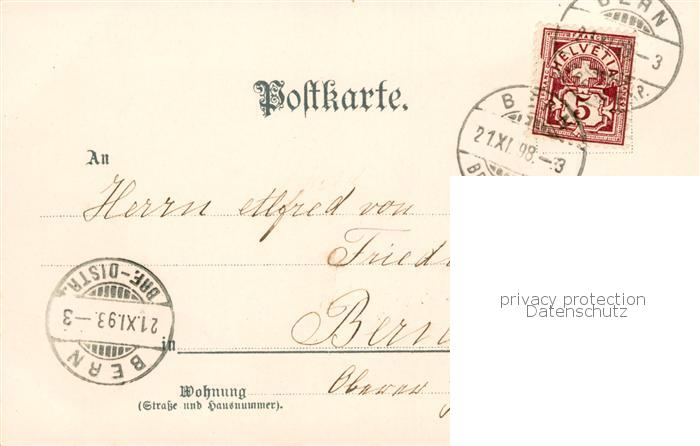 BERN
Postkarte.
HELVETIA
5
BERN
21.XI.98.-3
An
Herrn Alfred von
Fried
BRF-DISTR.
21.XI.93.-3
BERN
in Bern
Wohnung
Oberer
(Straße und Hausnummer).
privacy protection
Datenschutz